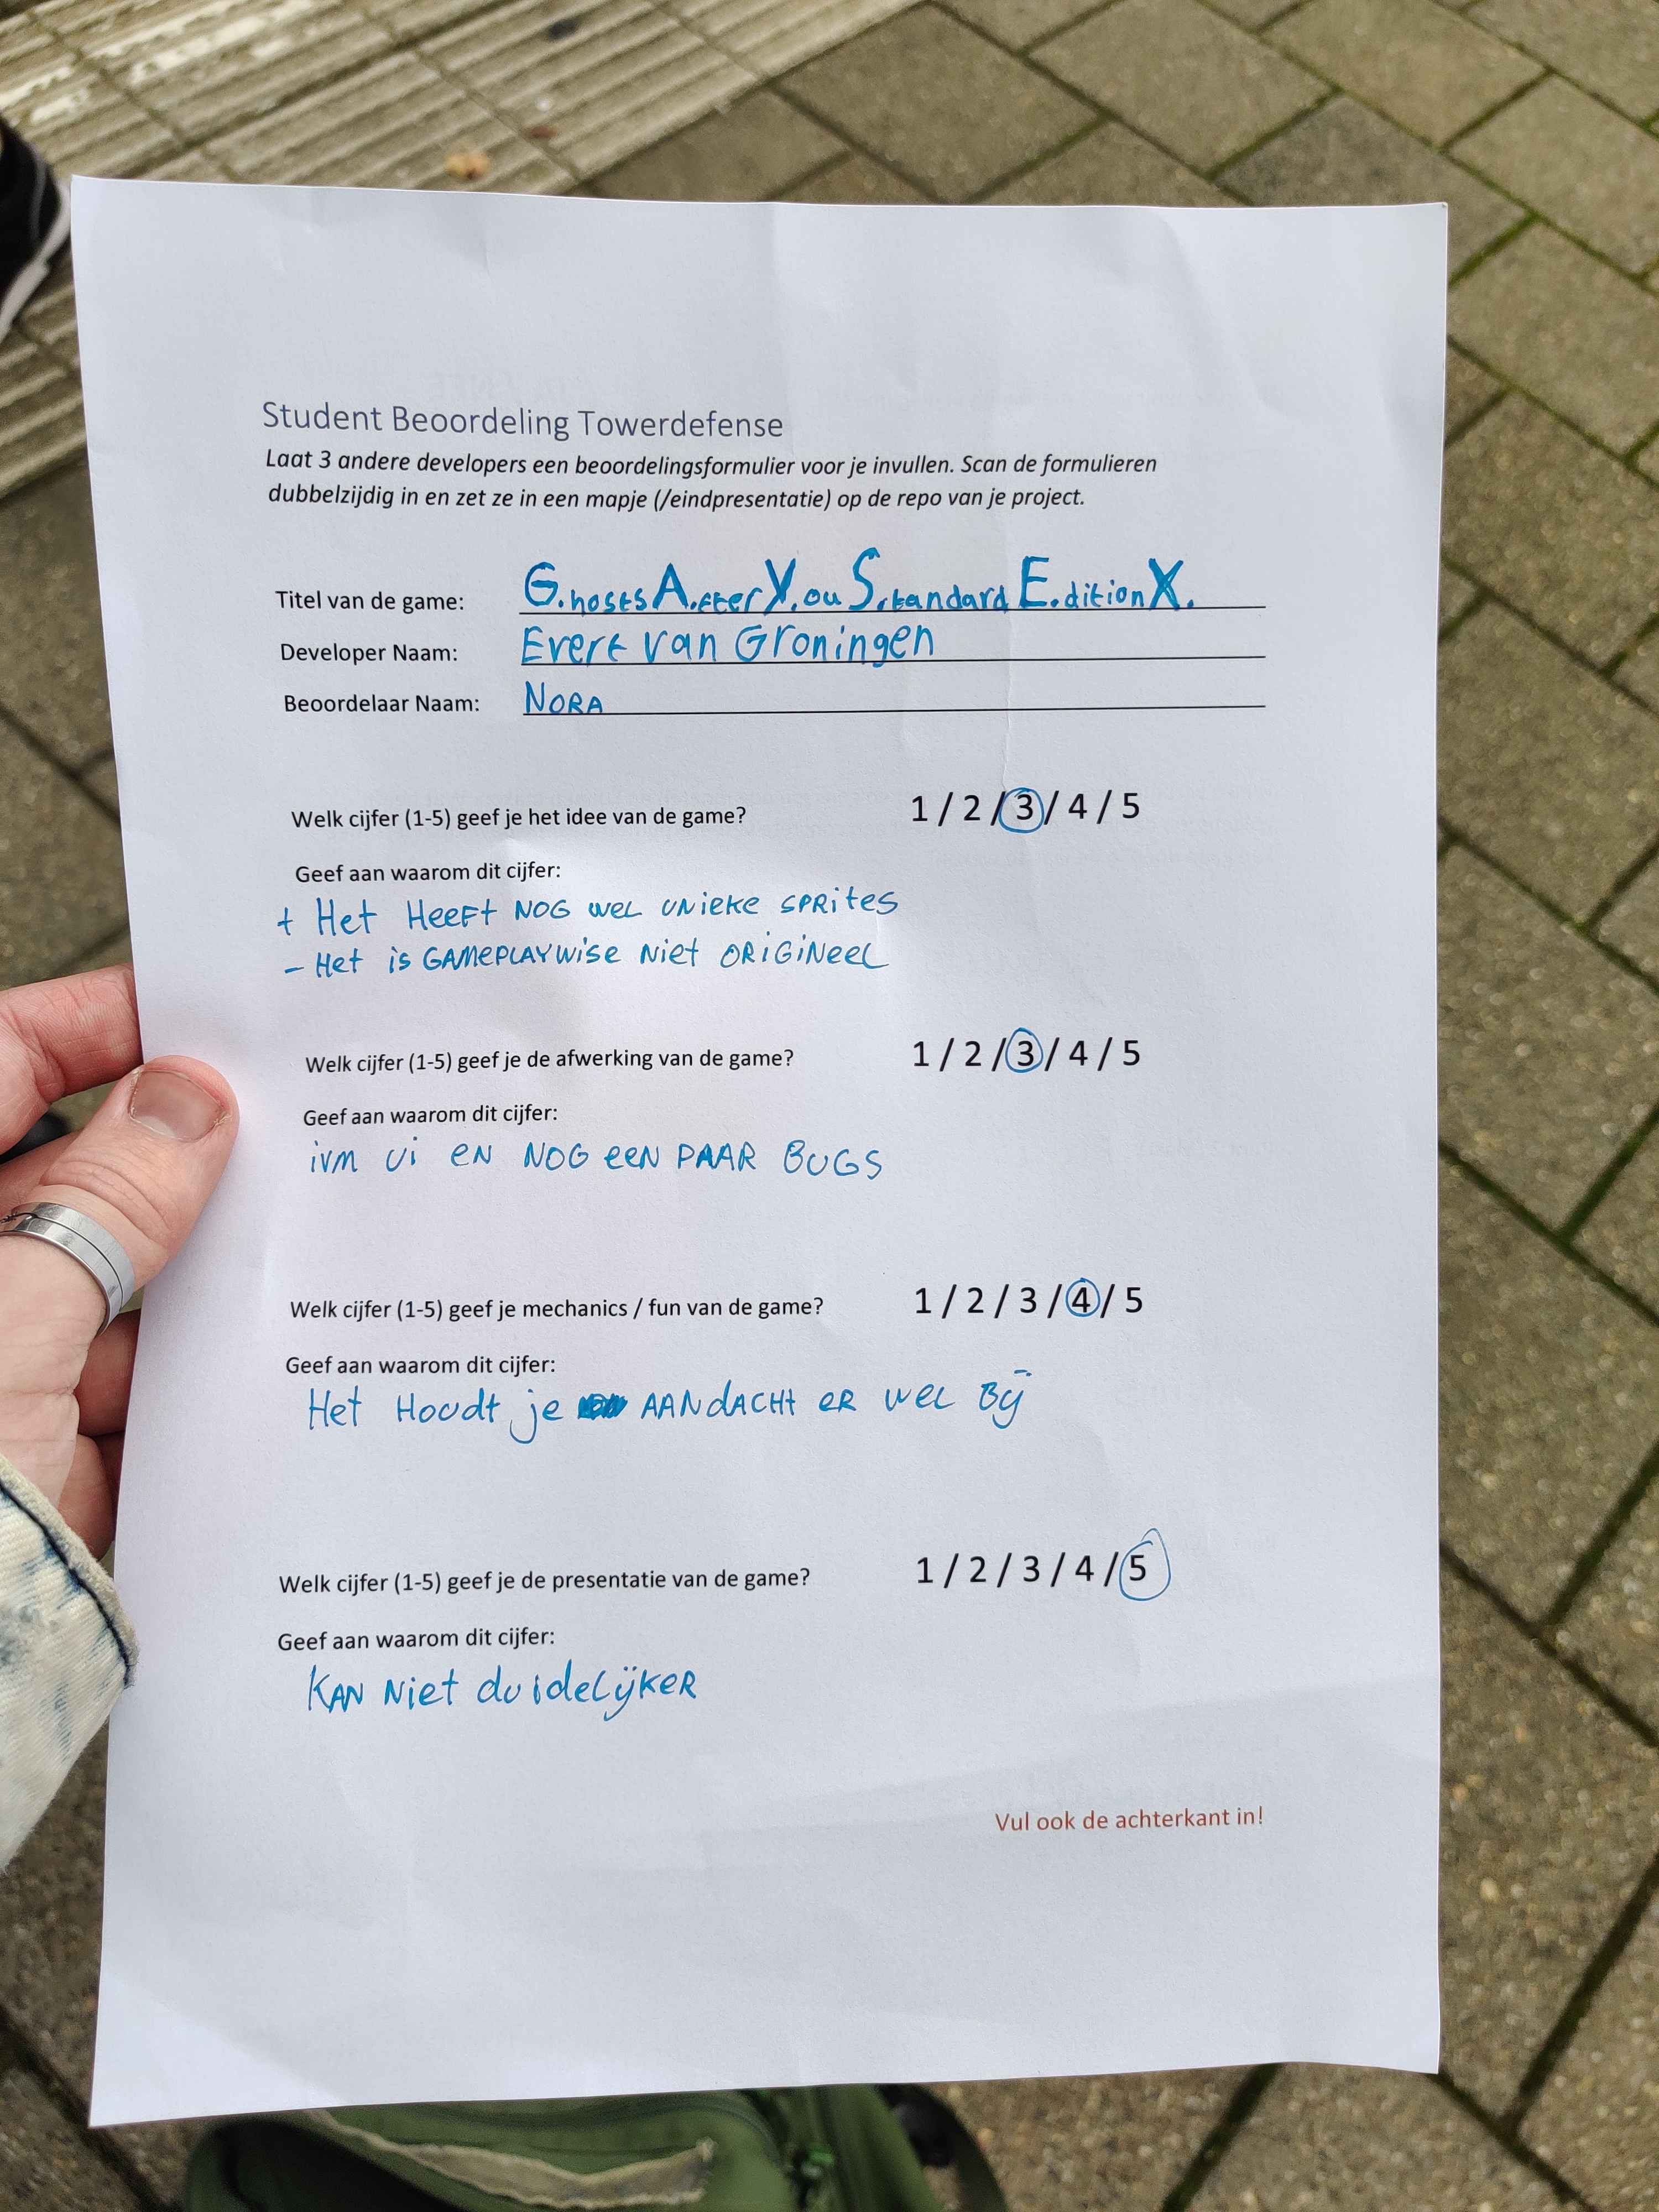 Student Beoordeling Towerdefense
Laat 3 andere developers een beoordelingsformulier voor je invullen. Scan de formulieren
dubbelzijdig in en zet ze in een mapje (/eindpresentatie) op de repo van je project.
Titel van de game: G.hosts A.fter Y.ou S.tandard E.dition X.
Developer Naam: Evert van Groningen
Beoordelaar Naam: NORA
Welk cijfer (1-5) geef je het idee van de game? 1 / 2 / 3 / 4 / 5
Geef aan waarom dit cijfer:
+ Het HeeFt NOG weL UNieKe SPRites
- Het is GAMePLAYWise Niet ORiGiNeeL
Welk cijfer (1-5) geef je de afwerking van de game? 1 / 2 / 3 / 4 / 5
Geef aan waarom dit cijfer:
ivm Ui eN NOG eeN PAAR BUGS
Welk cijfer (1-5) geef je mechanics / fun van de game? 1 / 2 / 3 / 4 / 5
Geef aan waarom dit cijfer:
Het Houdt je AANdACHt eR weL Bij
Welk cijfer (1-5) geef je de presentatie van de game? 1 / 2 / 3 / 4 / 5
Geef aan waarom dit cijfer:
KAN Niet duideLijKeR
Vul ook de achterkant in!